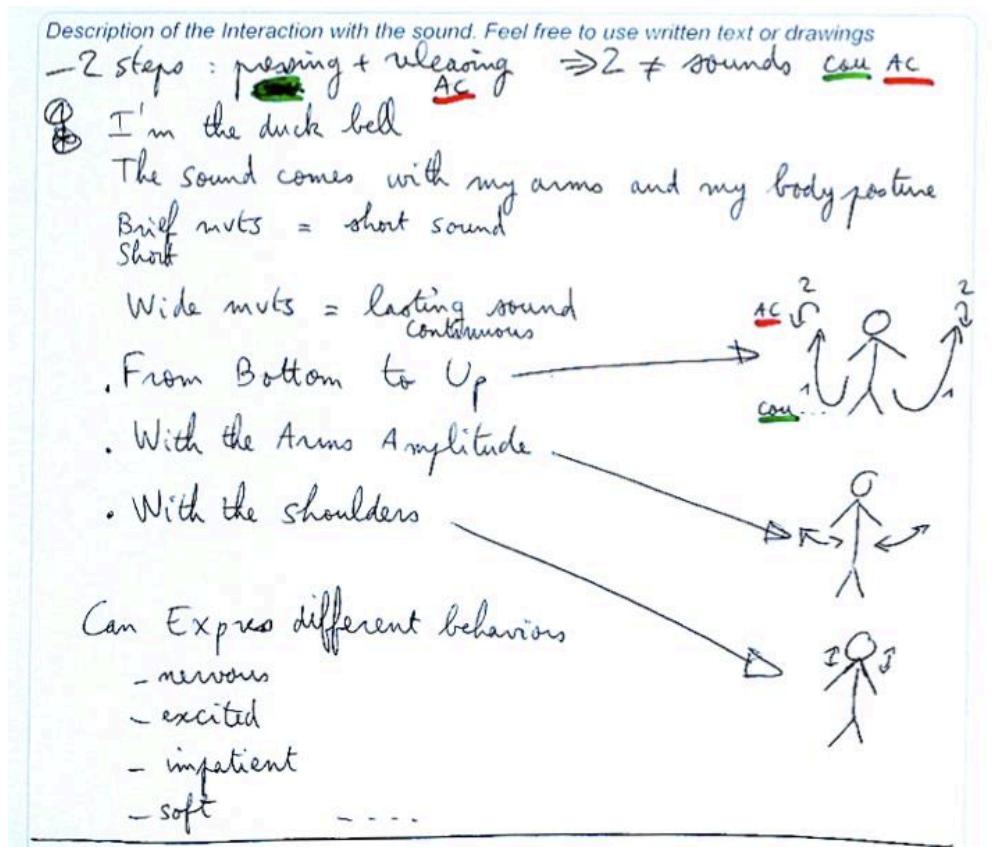 Description of the Interaction with the sound. Feel free to use written text or drawings
- 2 steps : pressing + releasing ⇒ 2 ≠ sounds cou AC
AC
I'm the duck bell
The sound comes with my arms and my body posture
Brief mvts = short sound
Short
Wide mvts = lasting sound
continuous
. From Bottom to Up
. With the Arms Amplitude
. With the shoulders
2 2
AC
1 1
cou...
Can Express different behaviors
- nervous
- excited
- impatient
- soft - - - -